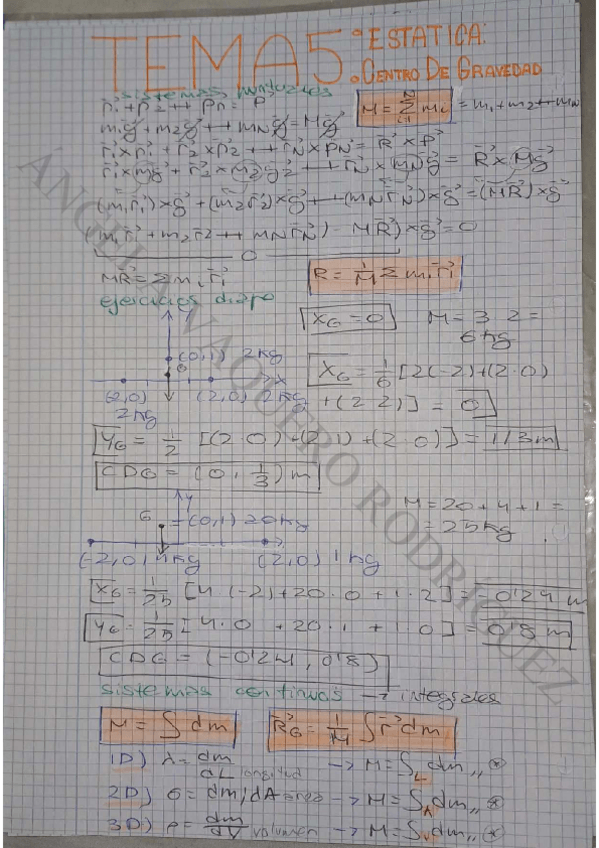 TEMA 5: ESTATICA:
CENTRO DE GRAVEDAD
sistemas puntuales
p⃗1 + p⃗2 + ... + p⃗N = P⃗
M = Σ mi = m1 + m2 + ... + mN
m1g⃗ + m2g⃗ + ... + mNg⃗ = Mg⃗
r⃗1 × p⃗1 + r⃗2 × p⃗2 + ... + r⃗N × p⃗N = R⃗ × P⃗
r⃗1 × m1g⃗ + r⃗2 × m2g⃗ + ... + r⃗N × mNg⃗ = R⃗ × Mg⃗
(m1r⃗1) × g⃗ + (m2r⃗2) × g⃗ + ... + (mNr⃗N) × g⃗ = (MR⃗) × g⃗
(m1r⃗1 + m2r⃗2 + ... + mNr⃗N - MR⃗) × g⃗ = 0
0
MR⃗ = Σ mi r⃗i
R = 1/M Σ mi r⃗i
ejercicios diapo
y
XG = 0
M = 3·2 =
6kg
(0,1) 2kg
G
x
XG = 1/6 [2(-2)+(2·0)
+(2·2)] = 0
(-2,0)
2kg
(2,0) 2kg
YG = 1/2 [(2·0)+(2·1)+(2·0)] = 1/3 m
CDG = (0, 1/3) m
y
M = 20 + 4 + 1 =
= 25kg
G
(0,1) 20kg
(-2,0) 4kg
(2,0) 1kg
XG = 1/25 [4·(-2)+20·0+1·2] = -0'24 m
YG = 1/25 [4·0 + 20·1 + 1·0] = 0'8 m
CDG = (-0'24, 0'8)
sistemas continuos → integrales
M = ∫ dm
R⃗G = 1/M ∫ r⃗ dm
1D) λ = dm/dL longitud → M = ∫L dm,, *
2D) σ = dm/dA area → M = ∫A dm,, *
3D) ρ = dm/dV volumen → M = ∫V dm,, *
ANGELA VAQUERO RODRIGUEZ